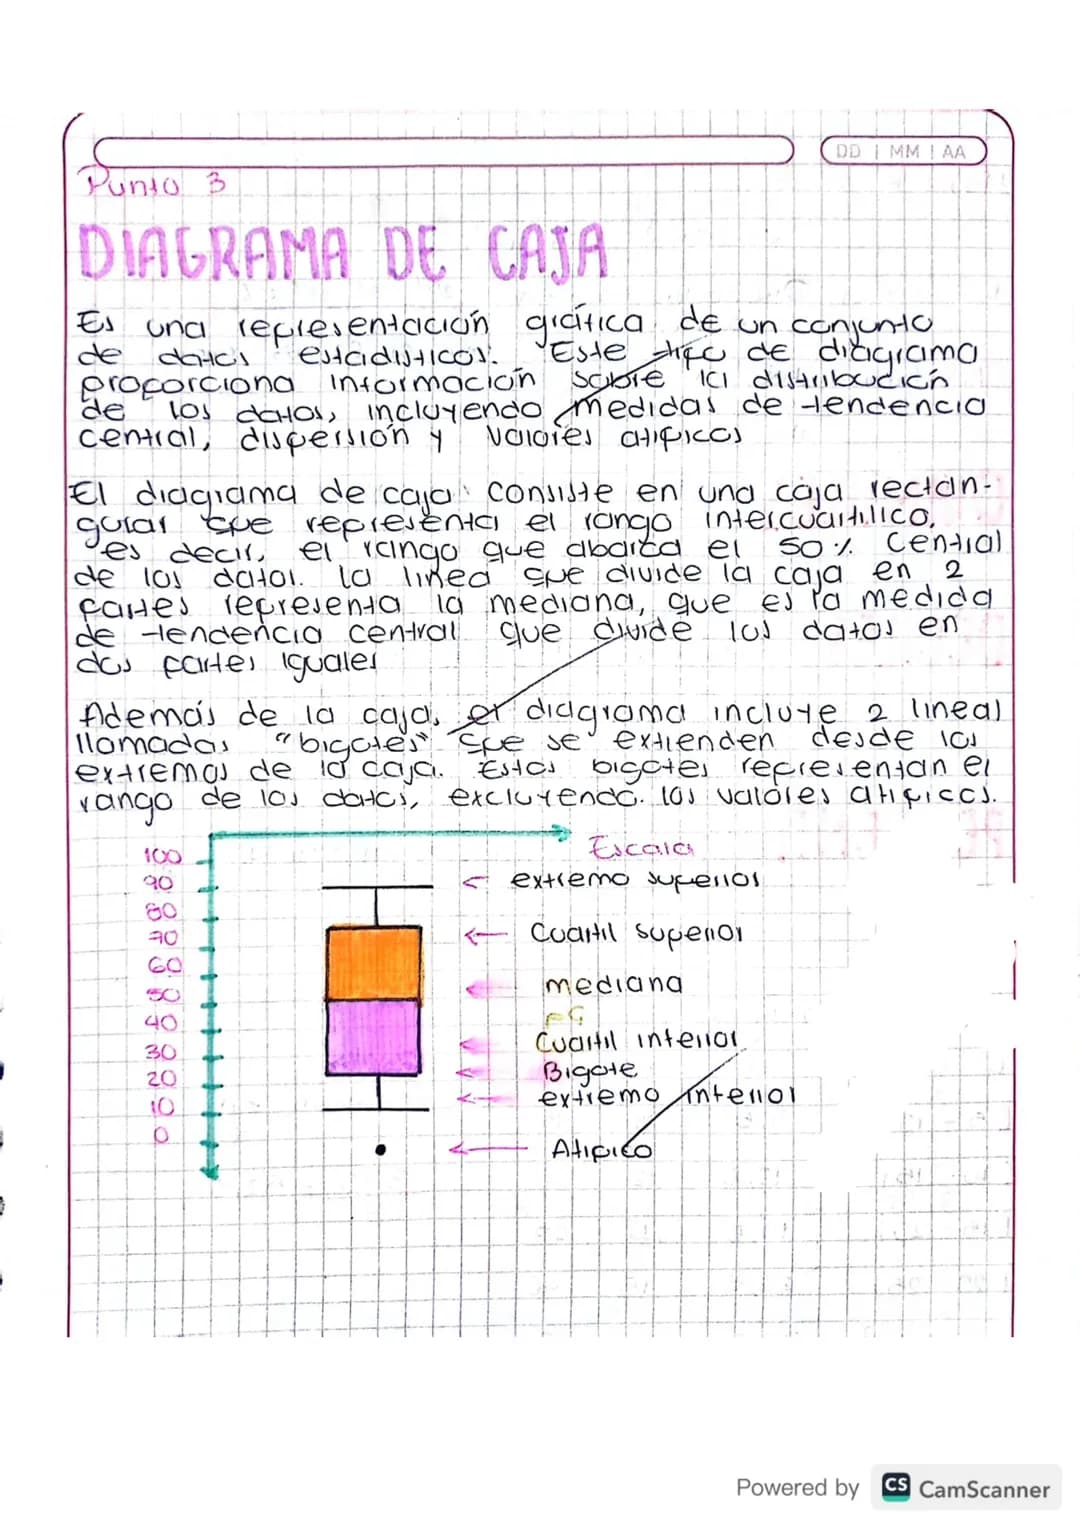 DD | MM | AA
Punto 3
DIAGRAMA DE CAJA
Es una representación gráfica de un conjunto
de datos estadísticos. Este tipo de diagrama
proporciona información sobre la distribución
de los datos, incluyendo medidas de tendencia
central, dispersión y valores atipicos
El diagrama de caja consiste en una caja rectan-
gular que representa el rango intercuartilico,
es decir, el rango que abarca el 50% central
de los datos. La linea que divide la caja en 2
partes representa la mediana, que es la medida
de tendencia central que divide los datos en
dos partes iguales
Además de la caja, el diagrama incluye 2 lineas
llamadas "bigotes" que se extienden desde los
extremos de la caja. Estos bigotes representan el
rango de los datos, excluyendo los valores atipicos.
Escala
100
90
80
70
60
50
40
30
20
10
0
extremo superior
Cuartil superior
mediana
Cuartil inferior
Bigote
extremo inferior
Atipico
Powered by CS CamScanner